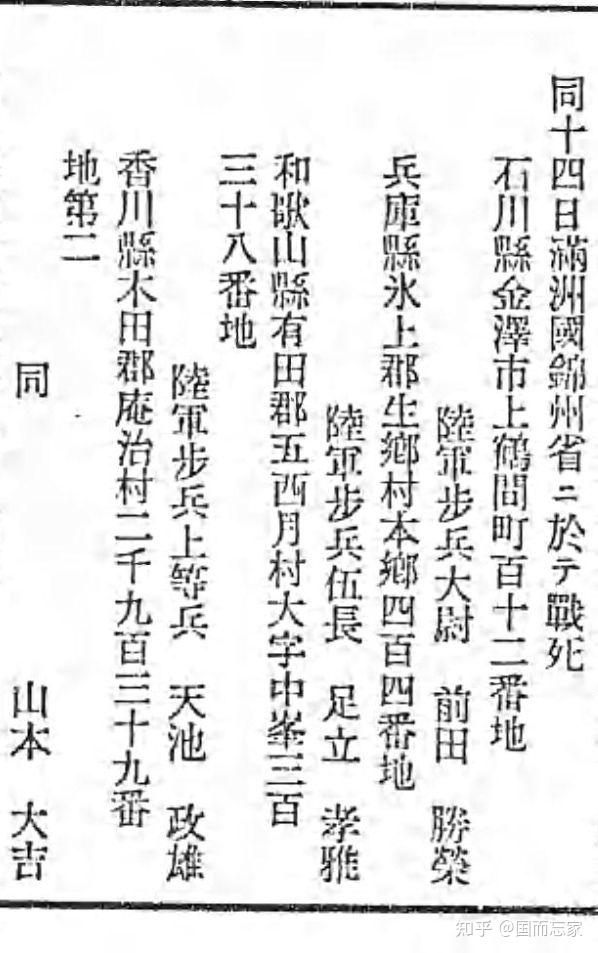 同十四日滿洲國錦州省ニ於テ戰死
石川縣金澤市上鶴間町百十二番地
陸軍步兵大尉 前田 勝榮
兵庫縣氷上郡生鄉村本鄉四百四番地
陸軍步兵伍長 足立 孝雅
和歌山縣有田郡五西月村大字中峯三百
三十八番地
陸軍步兵上等兵 天池 政雄
香川縣木田郡庵治村二千九百三十九番
地第二
同 山本 大吉
知乎 @国而忘家